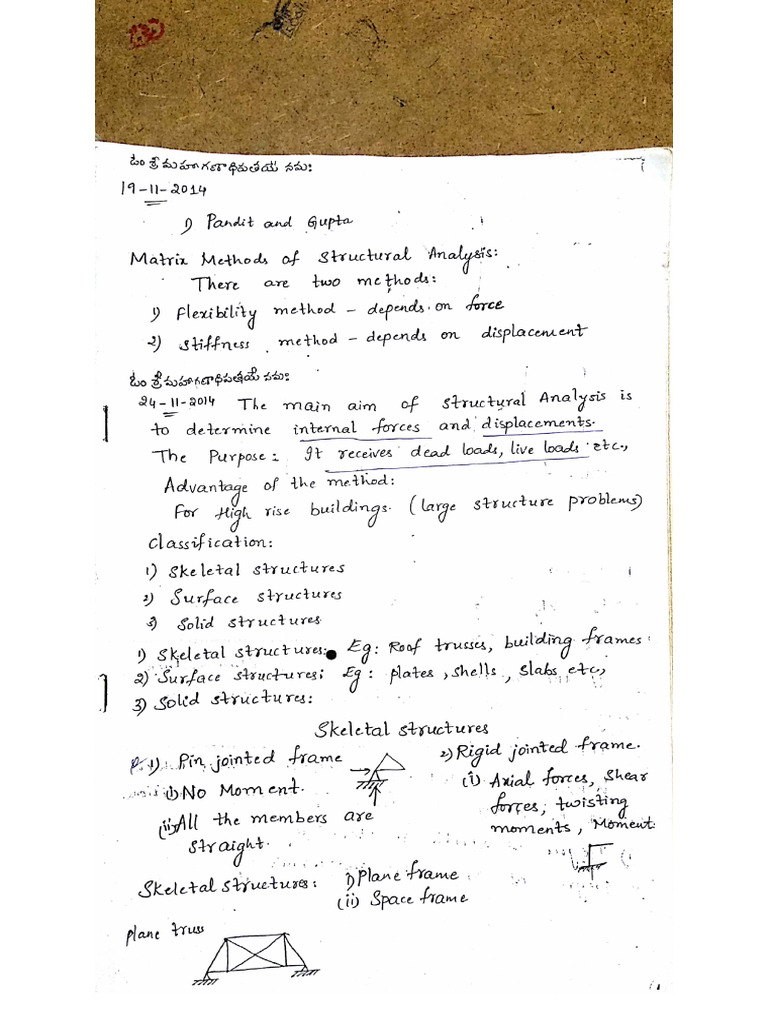 ఓం శ్రీ మహాగణాధిపతయే నమః
19-11-2014
1) Pandit and Gupta
Matrix Methods of Structural Analysis:
There are two methods:
1) Flexibility method - depends on force
2) Stiffness method - depends on displacement
ఓం శ్రీ మహాగణాధిపతయే నమః
24-11-2014 The main aim of Structural Analysis is
to determine internal forces and displacements.
The Purpose: It receives dead loads, live loads etc.,
Advantage of the method:
For High rise buildings. (large structure problems)
Classification:
1) Skeletal structures
2) Surface structures
3) Solid structures
1) Skeletal structures: Eg: Roof trusses, building frames
2) Surface structures; Eg: plates, shells, slabs etc,
3) Solid structures:
Skeletal structures
1) Pin jointed frame
(i) No Moment.
(ii) All the members are
straight.
2) Rigid jointed frame.
(i) Axial forces, shear
forces, twisting
moments, Moment
Skeletal structures: i) Plane frame
(ii) Space frame
plane truss